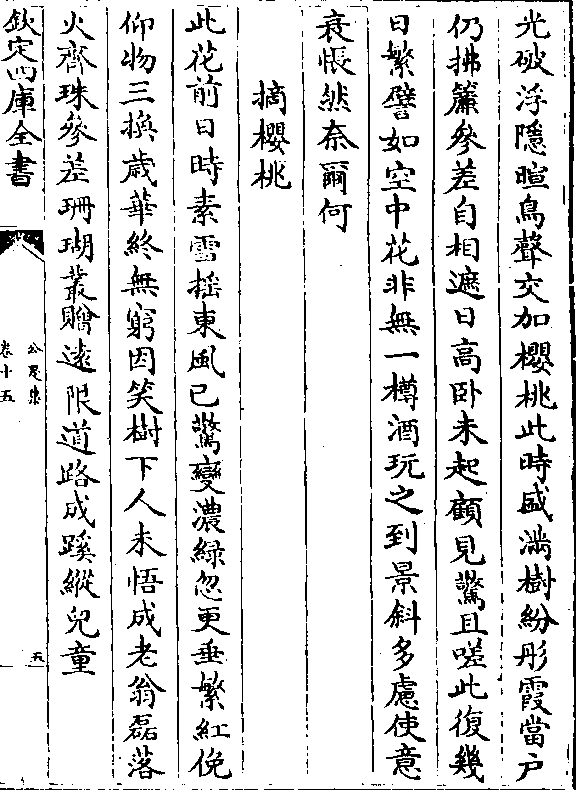 光破浮隱暄鳥聲交加櫻桃此時盛滿樹紛彤霞當戶
仍拂簾參差自相遮日高卧未起顧見驚且嗟此復幾
日繁譬如空中花非無一樽酒玩之到景斜多慮使意
衰悵然奈爾何
摘櫻桃
此花前日時素雪揺東風已驚變濃緑忽更垂繁紅俛
仰物三換歳華終無窮因笑樹下人未悟成老翁磊落
火齊珠參差珊瑚叢贈逺限道路成蹊縱兒童
欽定四庫全書
公是集
卷十五
五